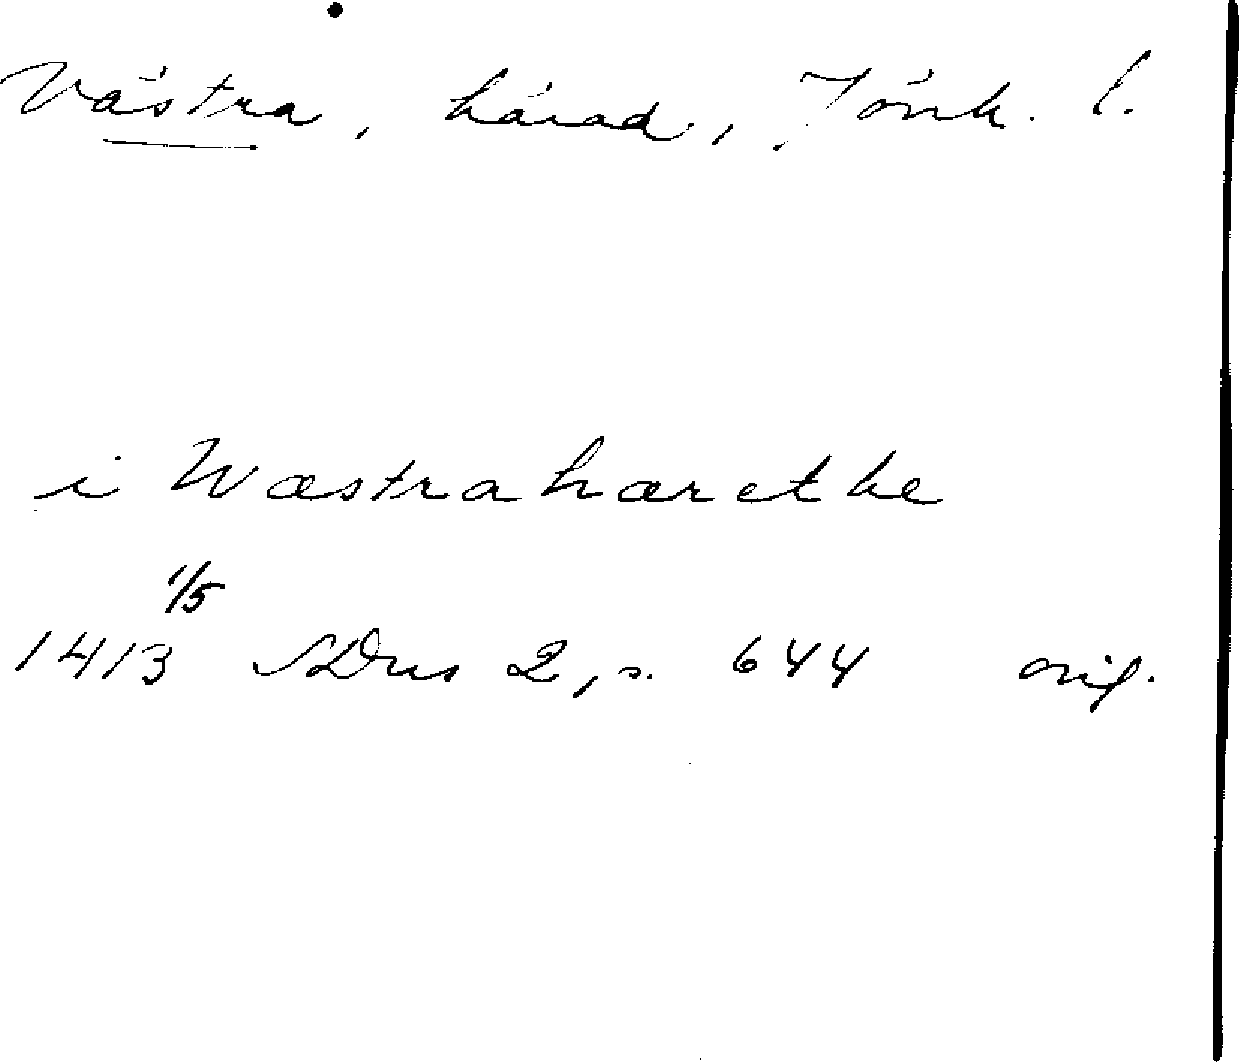 Västra, härad, Jönk. l.
i Wæstrahærethe
1/5
1413 SDns 2, s. 644 orig.